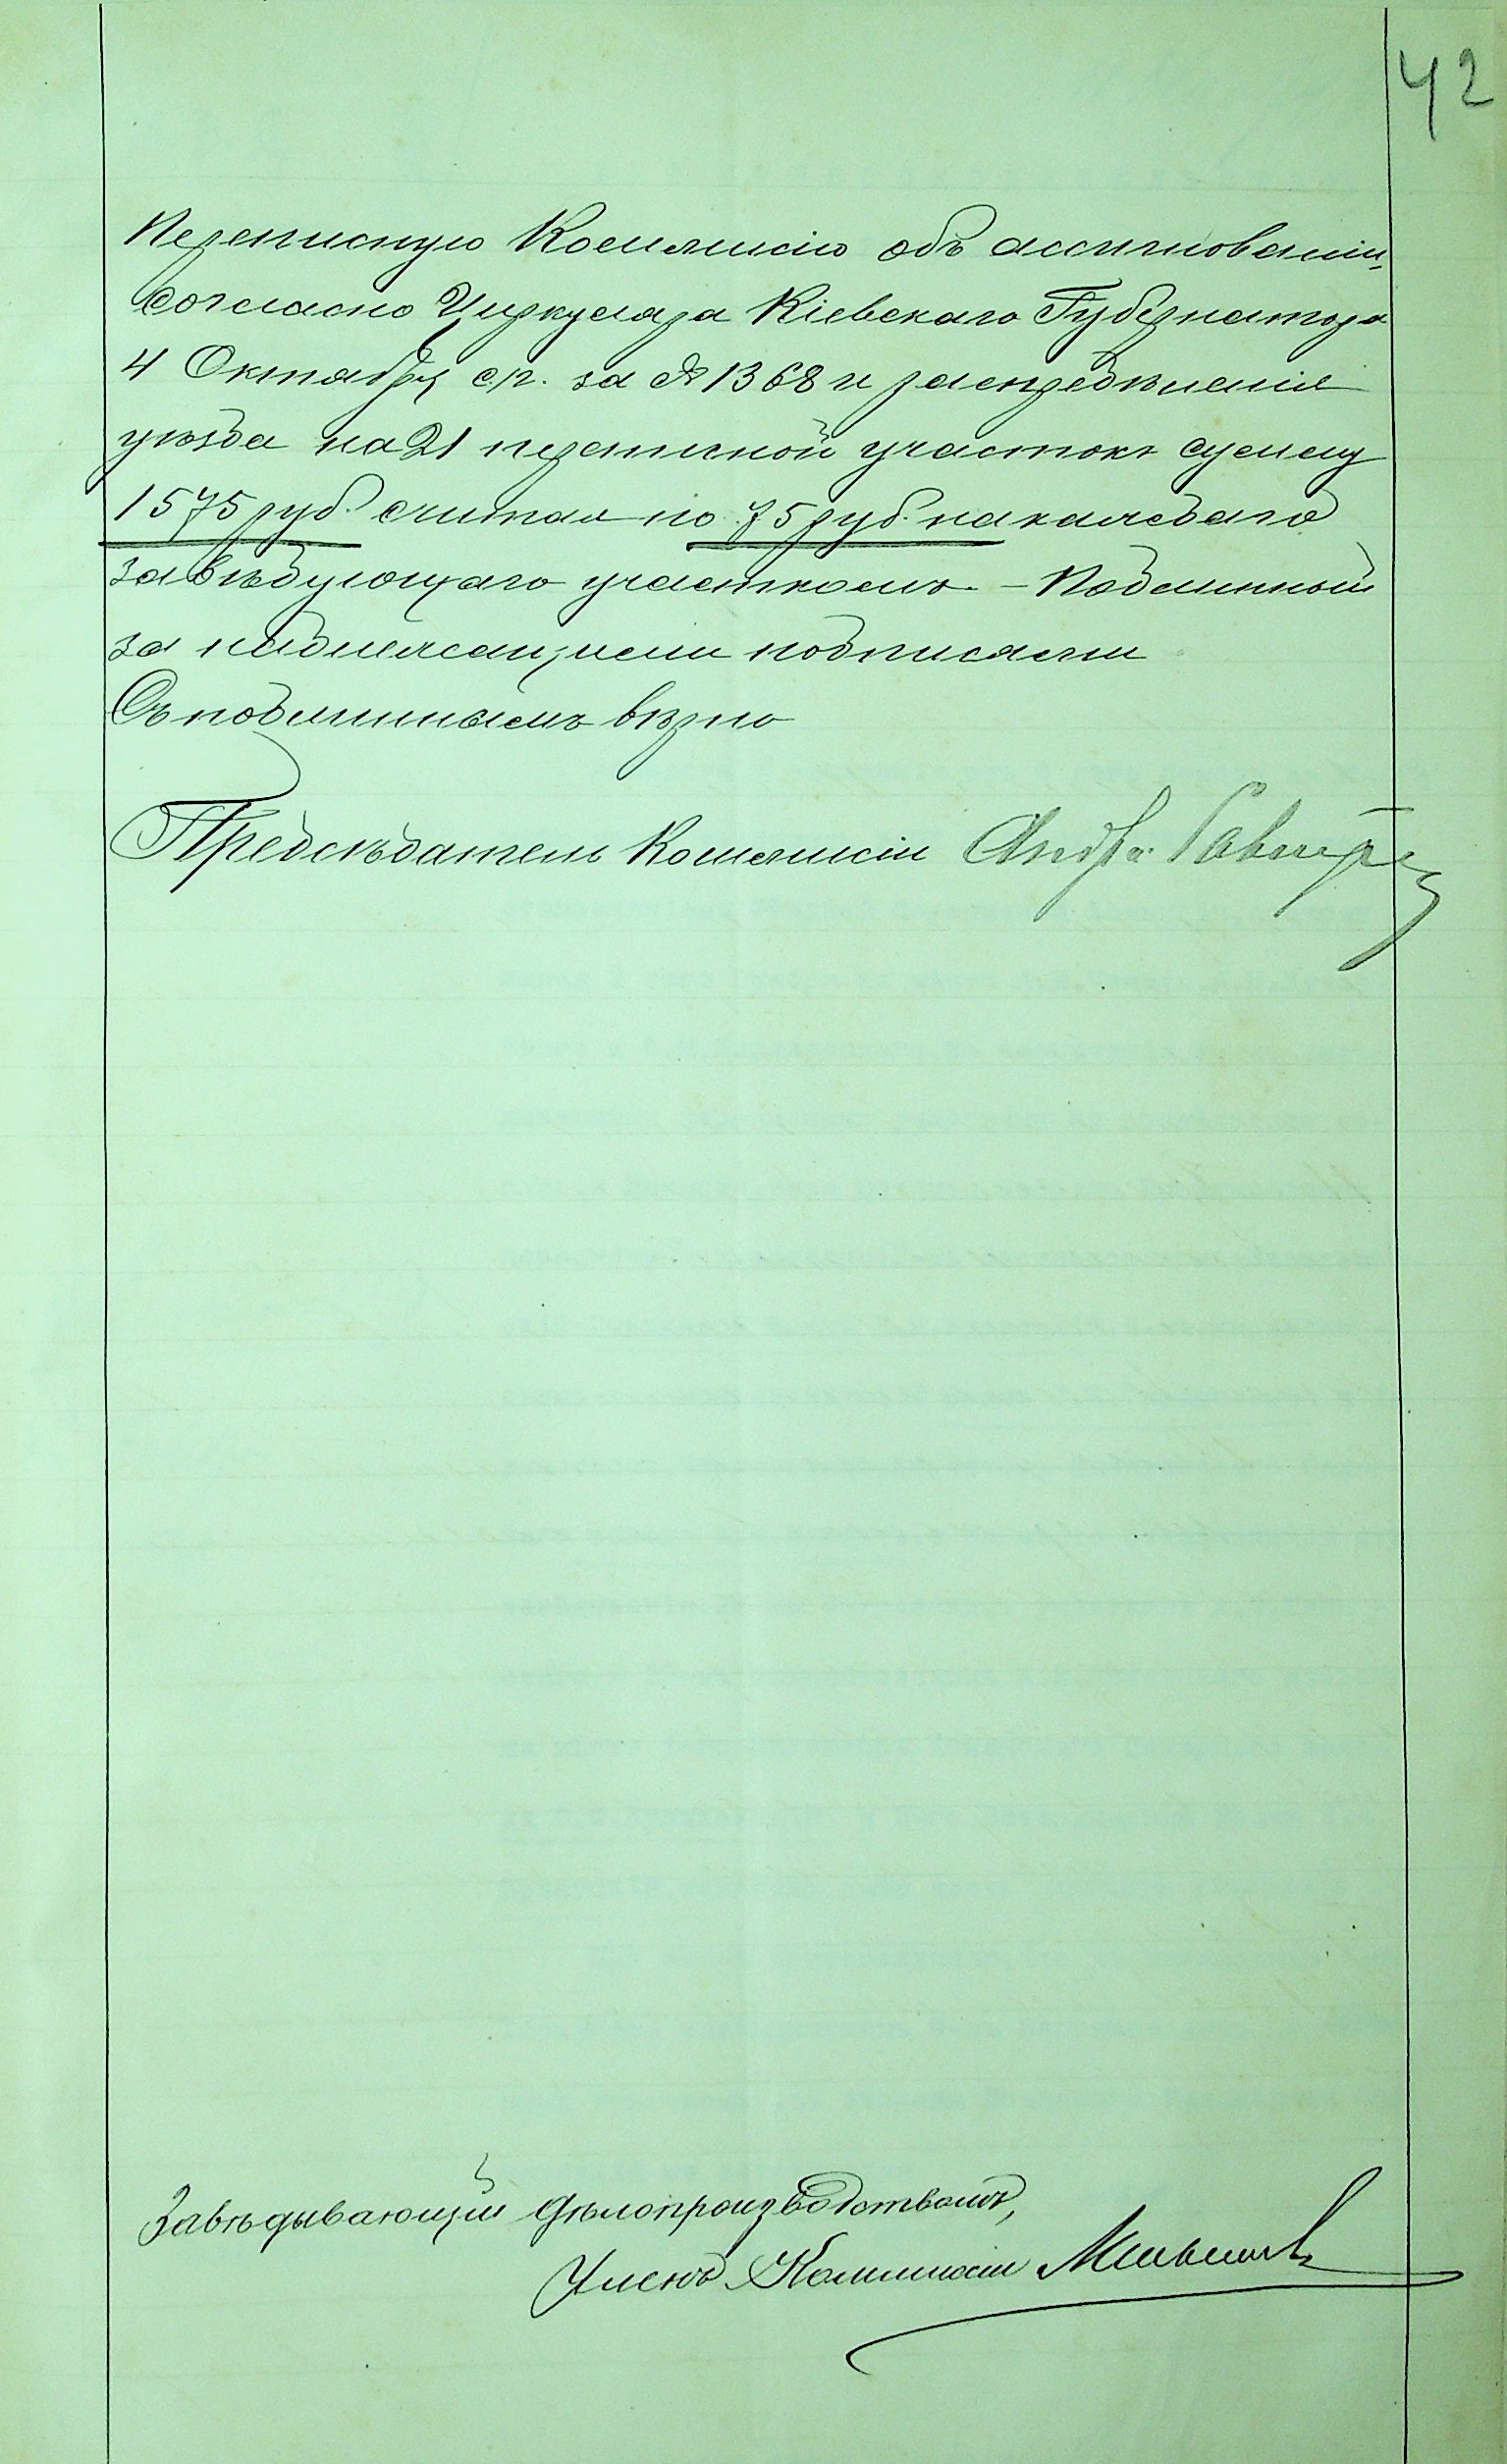 42
Переписную Коммисію объ ассигнованіи,
согласно Циркуляра Кіевскаго Губернатора
4 Октября с.г. за № 1368 и распредѣленія
уѣзда на 21 переписной участокъ сумму
1575 руб. считая по 75 руб. на каждаго
завѣдующаго участкомъ. – Подлинный
за надлежащими подписями
Съ подлиннымъ вѣрно
Предсѣдатель Коммисіи
Завѣдывающій дѣлопроизводствомъ,
Членъ Коммисіи